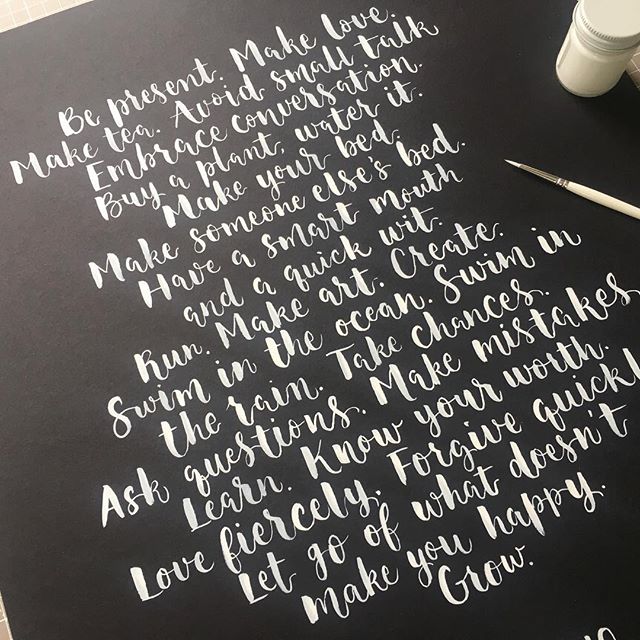 Be present. Make love.
Make tea. Avoid small talk
Embrace conversation.
Buy a plant, water it.
Make your bed.
Make someone else's bed.
Have a smart mouth
and a quick wit.
Run. Make art. Create.
Swim in the ocean. Swim in
the rain. Take chances.
Ask questions. Make mistakes
Learn. Know your worth.
Love fiercely. Forgive quickl
Let go of what doesn't
make you happy.
Grow.